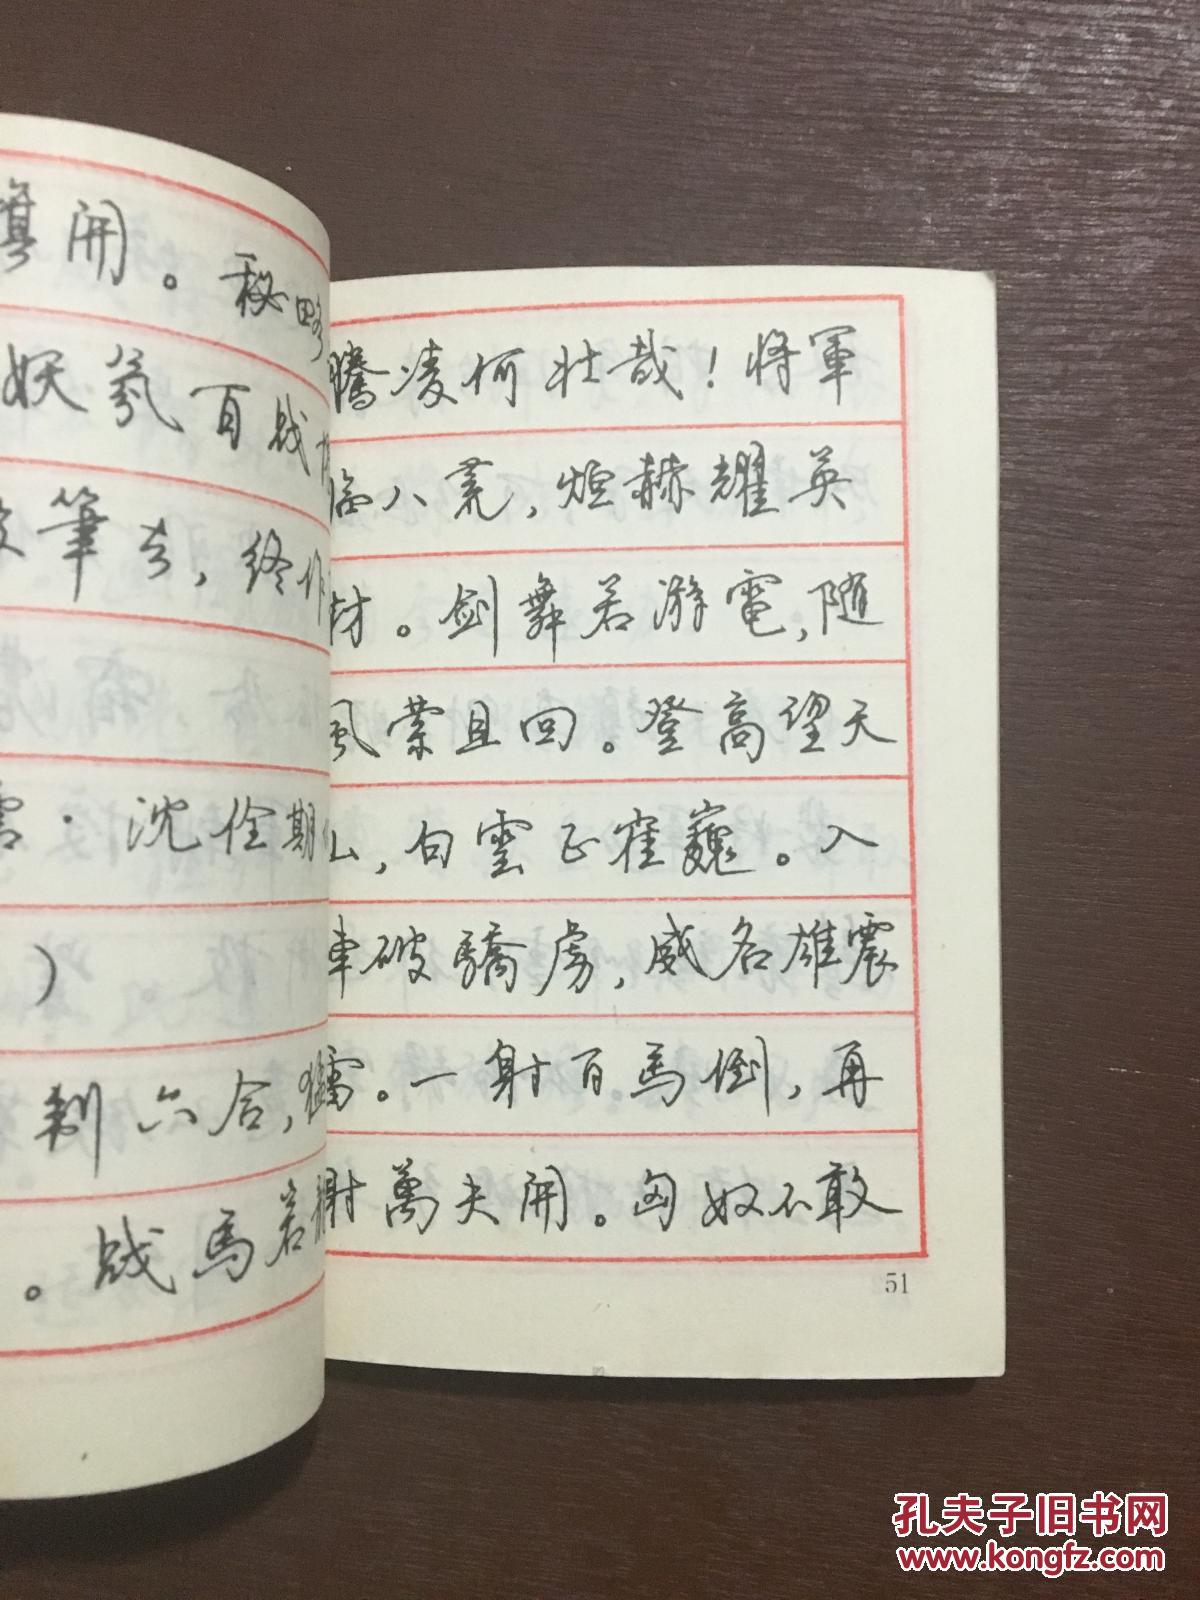 旗開。秘略
妖氛百战
筆去，终作
沈佺期
）
制六合，猶
。战馬若
騰凌何壮哉！将軍
临八荒，烜赫耀英
材。剑舞若游電，随
風萦且回。登高望天
山，白雲正崔巍。入
車破驕虏，威名雄震
雷。一射百馬倒，再
射萬夫開。匈奴不敢
51
孔夫子旧书网
www.kongfz.com